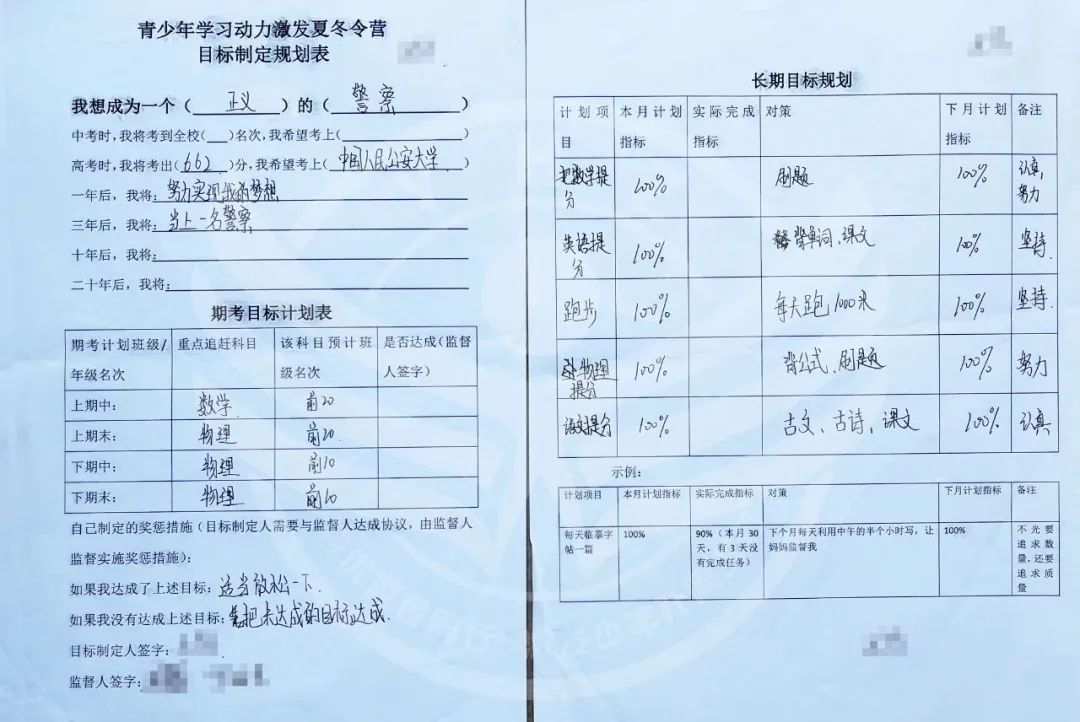 青少年学习动力激发夏冬令营
目标制定规划表
我想成为一个（正义）的（警察）
中考时，我将考到全校（ ）名次，我希望考上（ ）
高考时，我将考出（662）分，我希望考上（中国人民公安大学）
一年后，我将：努力实现我的梦想
三年后，我将：当上一名警察
十年后，我将：
二十年后，我将：
期考目标计划表
期考计划班级/年级名次 重点追赶科目 该科目预计班级名次 是否达成（监督人签字）
上期中： 数学 前20
上期末： 物理 前20
下期中： 物理 前10
下期末： 物理 前10
自己制定的奖惩措施（目标制定人需要与监督人达成协议，由监督人
监督实施奖惩措施）：
如果我达成了上述目标：适当放松一下.
如果我没有达成上述目标：把未达成的目标达成.
目标制定人签字：
监督人签字：
长期目标规划
计划项目 本月计划指标 实际完成指标 对策 下月计划指标 备注
把数学提分 100% 刷题 100% 认真，努力
英语提分 100% 背单词、课文 100% 坚持.
跑步 100% 每天跑1000米 100% 坚持.
物理提分 100% 背公式、刷题 100% 努力
语文提分 100% 古文、古诗、课文 100% 认真
示例：
计划项目 本月计划指标 实际完成指标 对策 下月计划指标 备注
每天临摹字帖一篇 100% 90%（本月30天，有3天没有完成任务） 下个月每天利用中午的半个小时写，让妈妈监督我 100% 不光要追求数量，还要追求质量